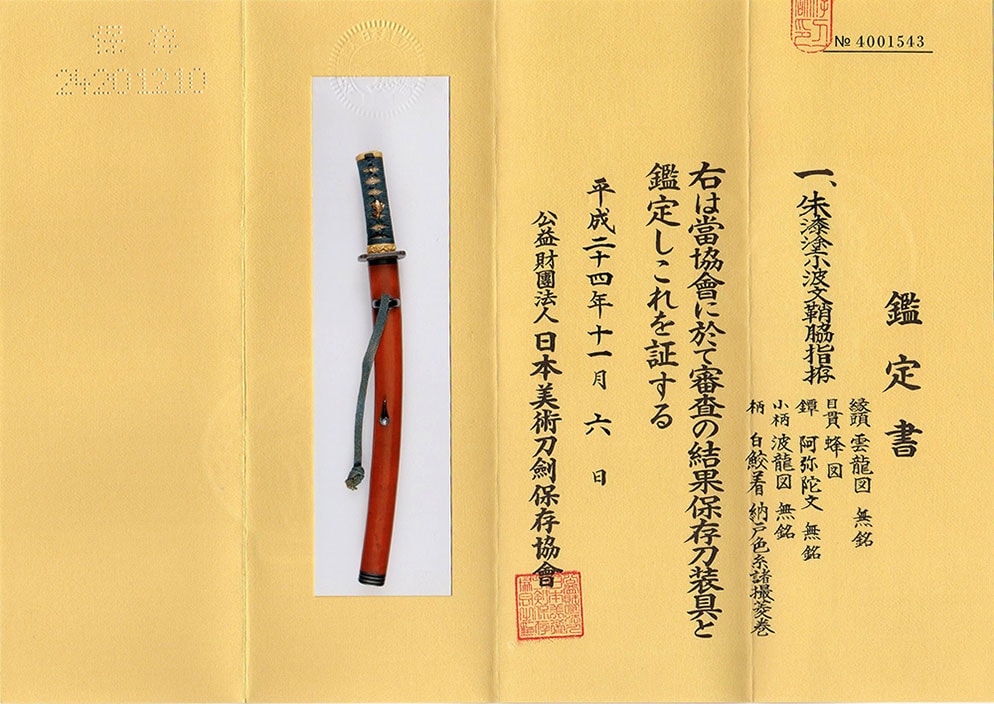 № 4001543
鑑定書
一、朱漆塗小波文鞘脇指拵
縁頭 雲龍図 無銘
目貫 蜂図
鐔 阿弥陀文 無銘
小柄 波龍図 無銘
柄 白鮫着 納戸色糸諸撮菱巻
右は當協會に於て審査の結果保存刀装具と
鑑定しこれを証する
平成二十四年十一月六日
公益財團法人 日本美術刀劍保存協會
保存
24201210